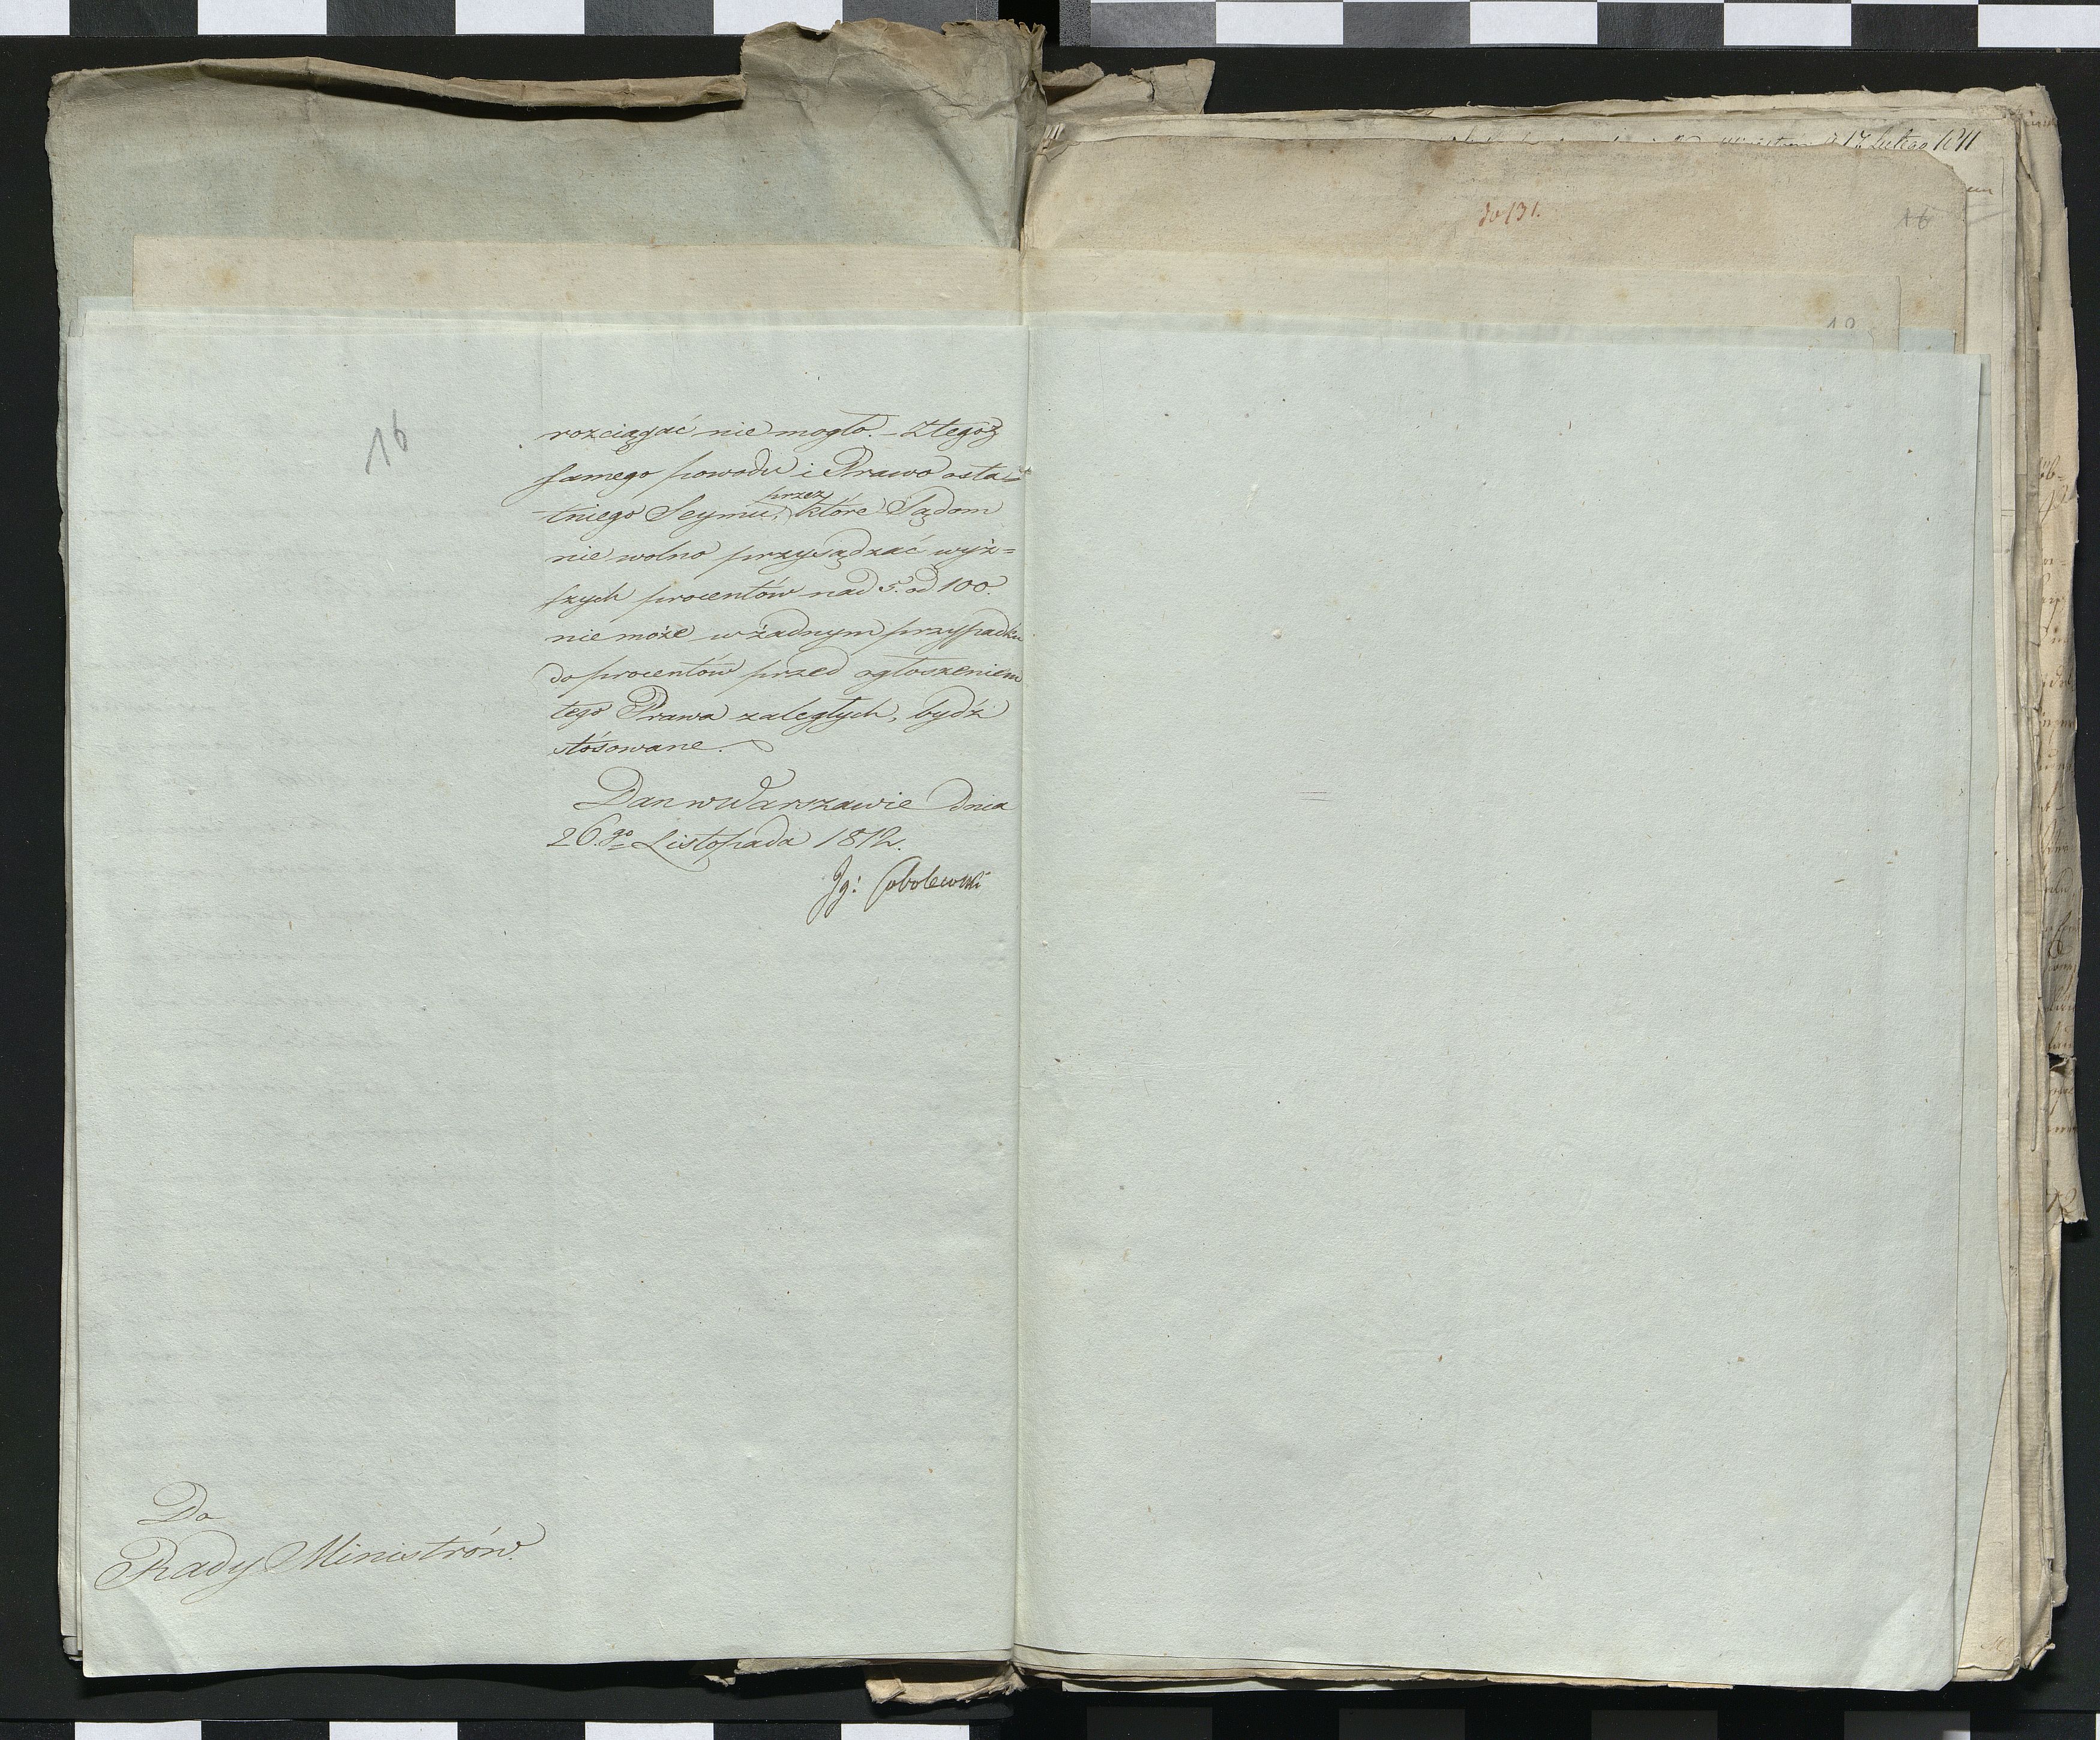 16
rozciągać nie mogło. – Z tegoż
samego powodu i Prawo osta=
tniego Seymu, przez które Sądom
nie wolno przysądzać wyż=
szych procentów nad 5. od 100.
nie może w żadnym przypadku
do procentów przed ogłoszeniem
tego Prawa zaległych, bydź
stósowane.
Dan w Warszawie dnia
26.go Listopada 1812.
Ig: Sobolewski
Do
Rady Ministrów.
17 Lutego 1811
do 131.
16